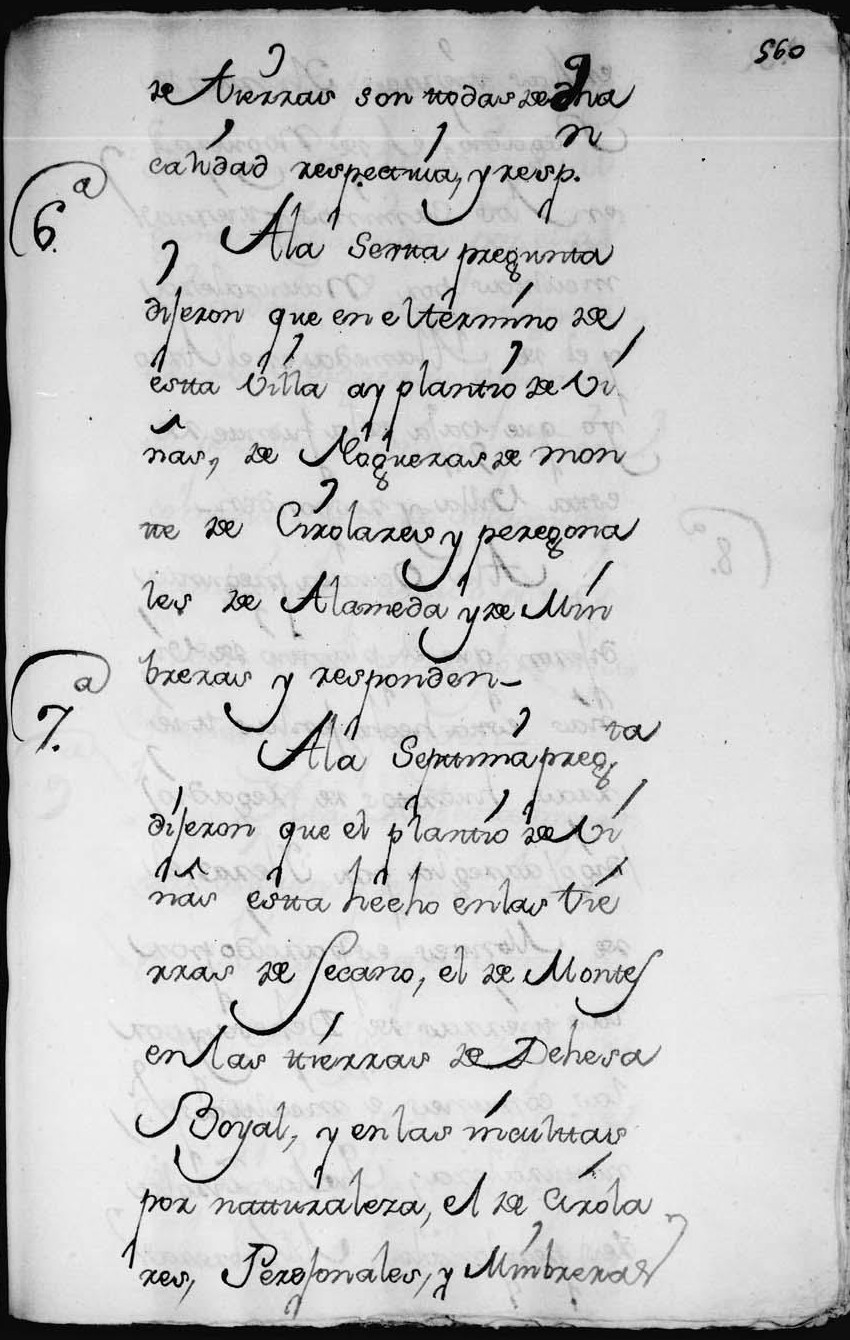 560
de tierras son ttodas de dha
calidad respectiva, y resp.n
6.a
Ala Sextta pregunta
dijeron que en el término de
estta Villa ay planttio de Vi
ñas, de Nogueras de mon
tte de Cirolares y peregona
les de Alameda y de Mim
breras y responden_
7.a
Ala Septtima preg.ta
dijeron que el planttio de Vi
ñas estta hecho en las Tie
rras de Secano, el de Montes
en las ttierras de Dehesa
Boyal, y en las inculttas
por natturaleza, el de Cirola
res, Peregonales, y Mimbreras